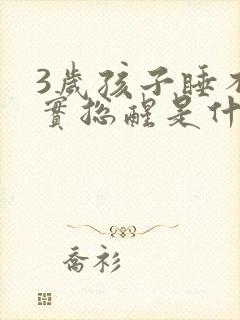 3歲孩子睡不
實總醒是什
喬衫